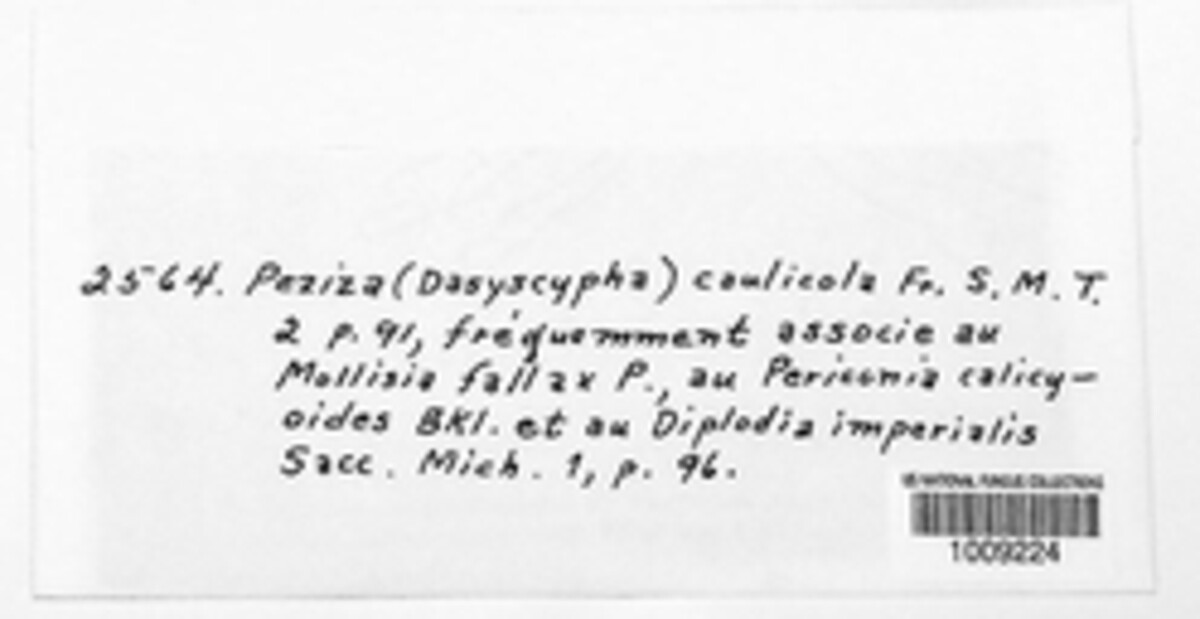 2564. Peziza (Dasyscypha) caulicola Fr. S. M. T.
2 p. 91, fréquemment associe au
Mollisia fallax P., au Periconia calicy-
oides BKl. et au Diplodia imperialis
Sacc. Mich. 1, p. 96.
US NATIONAL FUNGUS COLLECTIONS
1009224